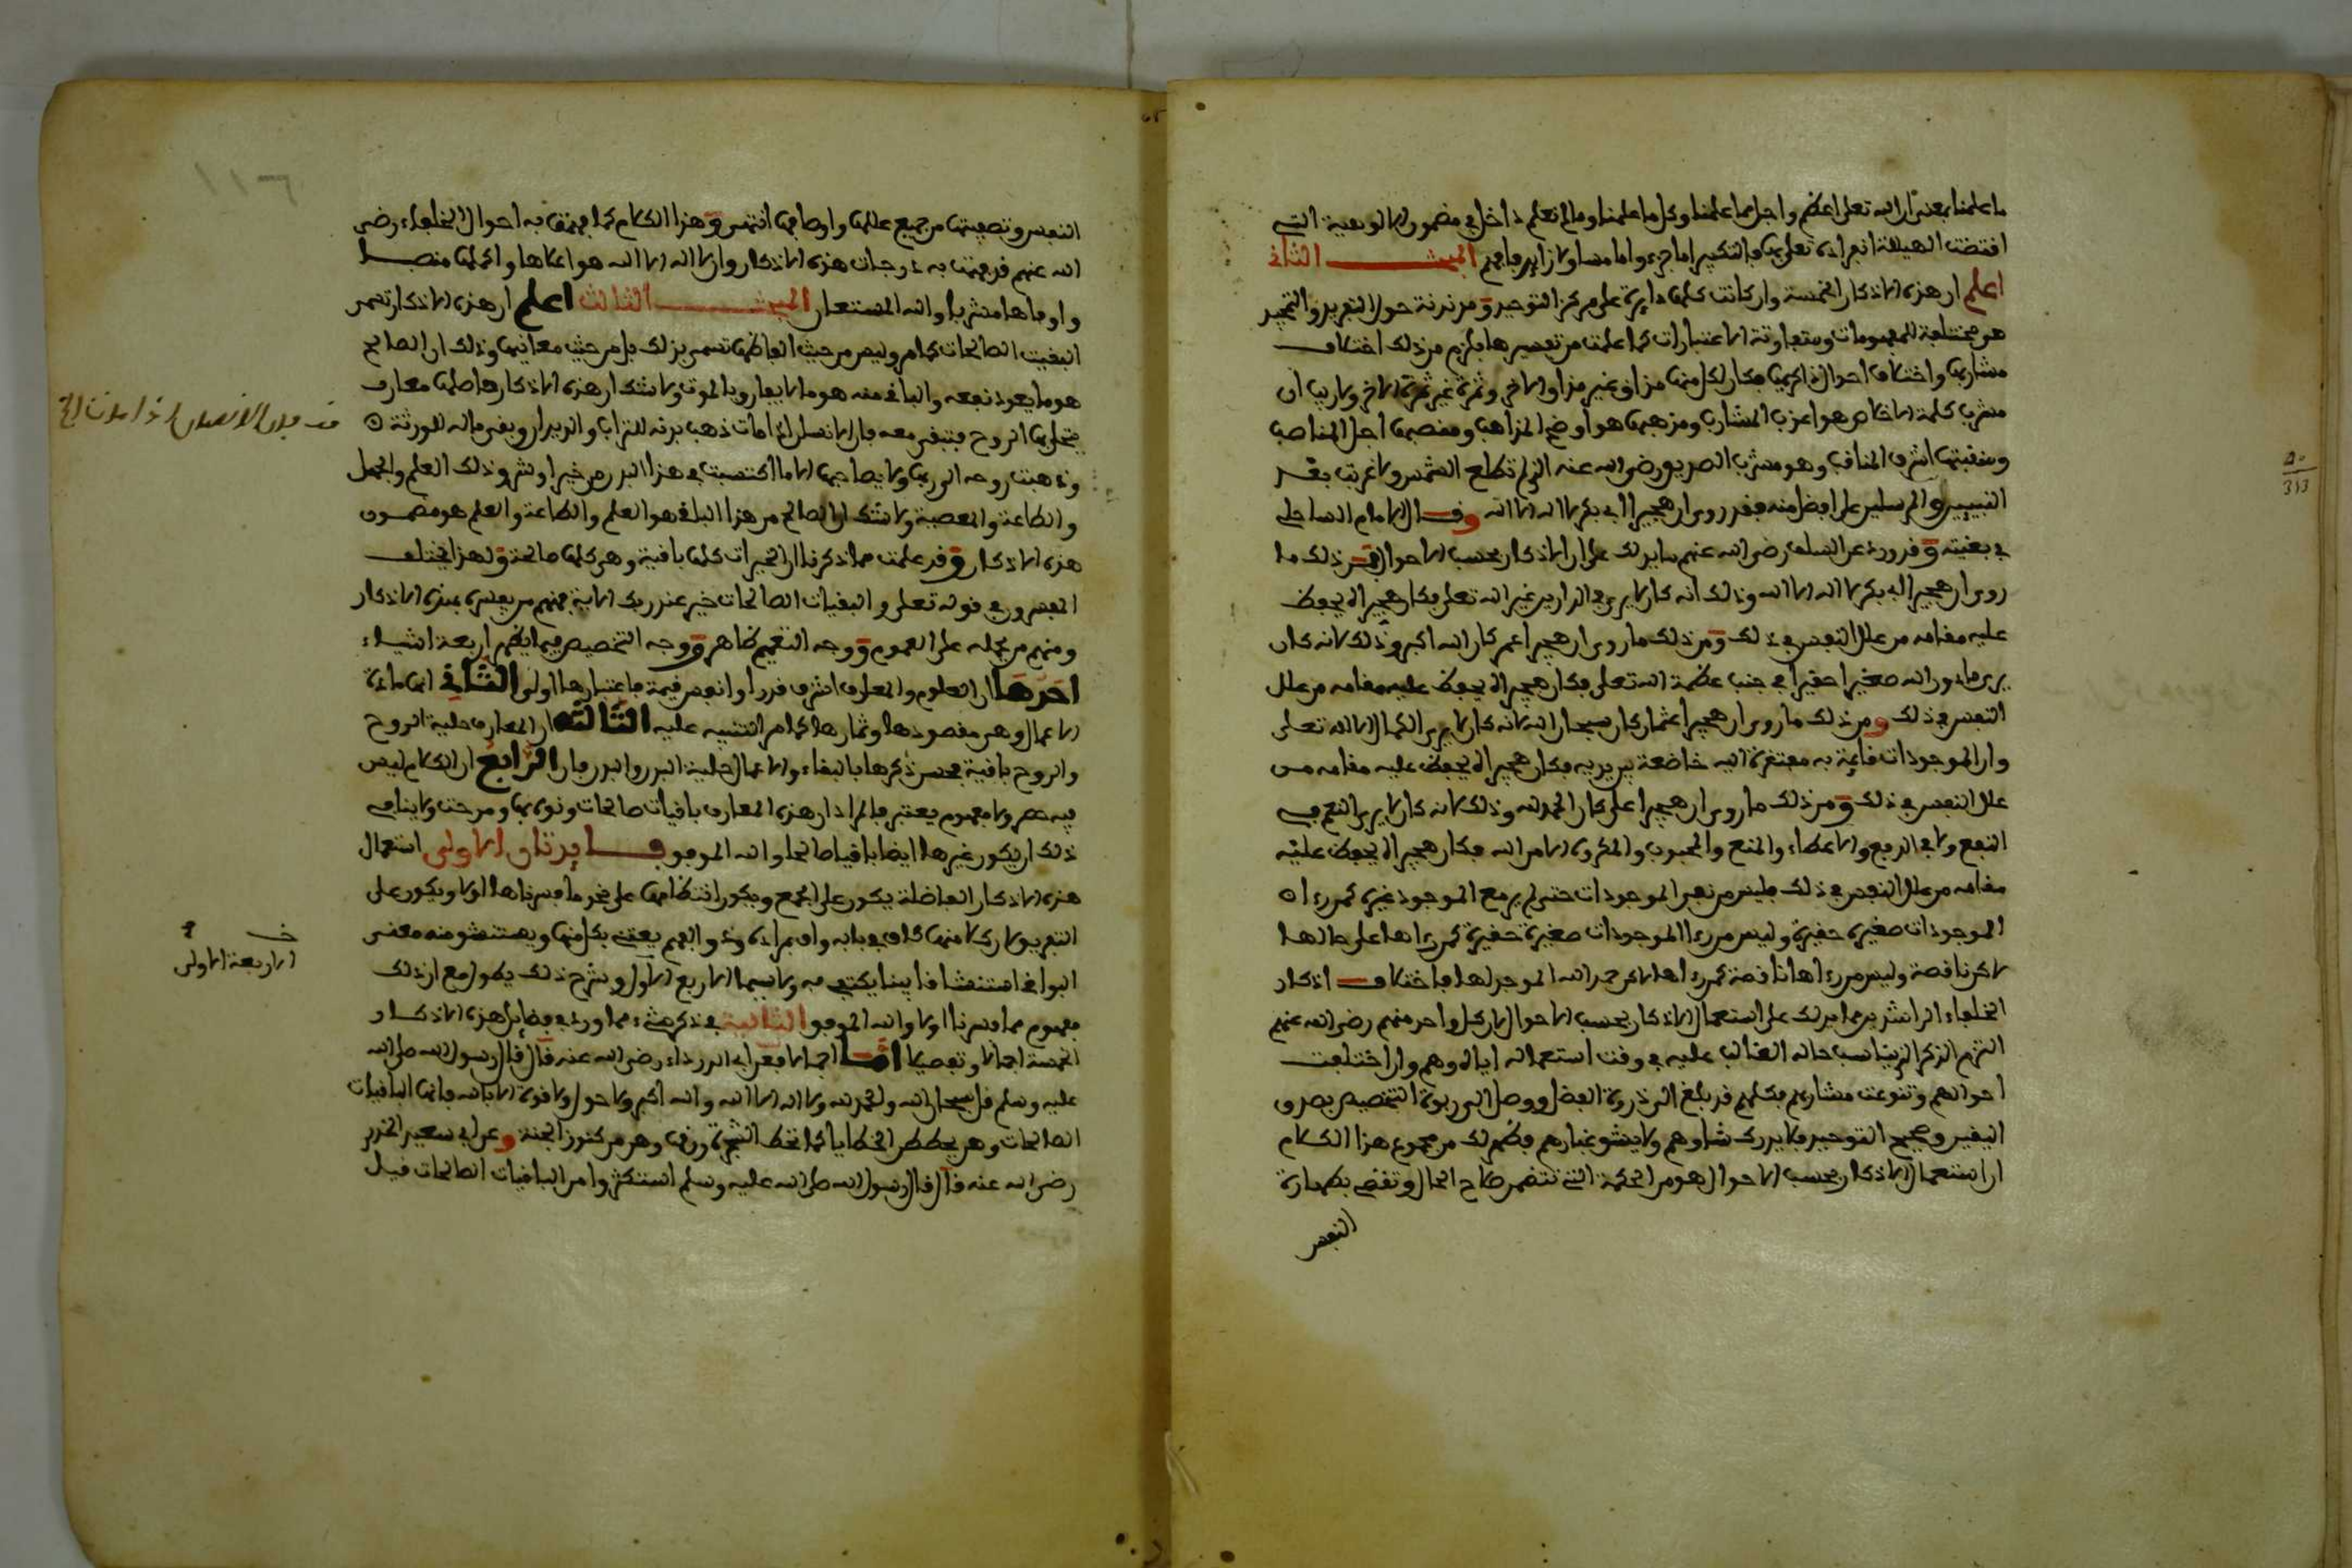 ما علمنا بمعنى أن الله تعلى أعظم وأجل مما علمنا وكل ما علمنا وما لم نعلم داخل في مضمون الالوهية التي
اقتضت الهيللة انفراده تعلى بها فالتكبير اما جزء واما مساو لا زايد فافهم المبحث الثاني
اعلم ان هذه الاذكار الخمسة وان كانت كلها دايرة على مركز التوحيد ومدندنة حول التفريد والتمجيد
هي مختلفة المفهومات ومتفاوتة الاعتبارات كما علمت من تفسيرها فلزم من ذلك اختلاف
مشاربها واختلاف احوال ذاكريها فكان لكل منها مذاق غير مذاق الاخر وثمرة غير ثمرة الاخر ولا ريب ان
مشرب كلمة الاخلاص هو اعذب المشارب ومذهبها هو اوضح المذاهب ومنصبها اجل المناصب
ومنقبتها اشرف المناقب وهو مشرب الصديق رضي الله عنه الذي لم تطلع الشمس ولا غربت بعد
النبيين والمرسلين على افضل منه فقد روي ان هجيرا ابي بكر لا اله الا الله وقال الامام الساحلي
في بغيته وقد ورد عن السلف رضي الله عنهم ما يدلك على ان الاذكار بحسب الاحوال فمن ذلك ما
روي ان هجير ابي بكر لا اله الا الله وذلك انه كان لا يرى في الدارين غير الله تعلى فكان هجيراه يحفظ
عليه مقامه من علل النفس في ذلك ومن ذلك ما روي ان هجير اعمر كان الله اكبر وذلك لانه كان
يرى ما دون الله صغيرا حقيرا في جنب عظمة الله تعلى فكان هجيراه يحفظ عليه مقامه من علل
النفس في ذلك ومن ذلك ما روي ان هجيرا عثمان كان سبحان الله لانه كان لا يرى الكمال الا لله تعلى
وان الموجودات قائمة به مفتقرة اليه خاضعة بين يديه فكان هجيراه يحفظ عليه مقامه من
علل النفس في ذلك ومن ذلك ما روي ان هجيرا علي كان الحمد لله وذلك لانه كان لا يرى النعم في
النفع ولا في الدفع والاعطاء والمنع والمحبوب والمكروه الا من الله فكان هجيراه يحفظ عليه
مقامه من علل النفس في ذلك فليس من نفى الموجودات حتى لم ير مع الموجود غيره كمن رءا
الموجودات صغيرة حقيرة وليس من رءا الموجودات صغيرة حقيرة كمن رءاها على حالها
لاكن ناقصة وليس من رءاها ناقصة كمن رءاها لاكن حمد الله الموجد لها فاختلاف اذكار
الخلفاء الراشدين مما يدلك على استعمال الاذكار بحسب الاحوال لان كل واحد منهم رضي الله عنهم
التزم الذكر الذي يناسب حاله الغالب عليه في وقت استعماله اياه وهم وان اختلفت
احوالهم وتنوعت مشاربهم فكلهم قد بلغ الى ذروة الفضل ووصل الى ربوة التخصيص بصدق
اليقين وصحيح التوحيد فلا يدرك شاوهم ولا يشق غبارهم فظهر لك من مجموع هذا الكلام
ان استعمال الاذكار بحسب الاحوال هو من الحكمة التي تتضمن صلاح الحال وتقضي بطهارة
النفس
النفس وتصفيتها من جميع عللها واوصافها انتهى وهذا الكلام كما فهمت به احوال الخلفاء رضي
الله عنهم فقد فهمت به درجات هذه الاذكار وان لا اله الا الله هو اعلاها واكملها منصبا
واوفاها مشربا والله المستعان المبحث الثالث اعلم ان هذه الاذكار تسمى
البقيت الصالحات كما مر وليس من حيث الفاظها تسمى بذلك بل من حيث معانيها وذلك ان الصالح
هو ما يعود نفعه والباقي منه هو ما لا يفارق بالموت ولا شك ان هذه الاذكار حاصلها معارف
يتحلى بها الروح فتبقى معه فان الانسان اذا مات ذهب بدنه للتراب والديدان وبقى ماله للورثة
وذهبت روحه الى ربها ولا يصاحبها الا ما اكتسبت في هذا البدن من خير او شر وذلك العلم والجهل
والطاعة والمعصية ولا شك ان الصالح من هذا الباقي هو العلم والطاعة والعلم هو مضمون
هذه الاذكار وقد علمت مما ذكرنا ان الخيرات كلها باقية وهي كلها صالحة ولهذا اختلف
المفسرون في قوله تعلى والبقيات الصالحات خير عند ربك الاية فمنهم من يفسره بهذه الاذكار
ومنهم من يحمله على العموم ووجه التعميم ظاهر ووجه التخصيص فيما يظهر اربعة اشياء
احدها ان العلوم والمعارف اشرف قدرا وانفس قيمة فاعتبارها اولى الثاني انها مادة
الاعمال وهي مقصودها وثمارها كما مر التنبيه عليه الثالث ان المعارف حلية الروح
والروح باقية فحسن ذكرها بالبقاء والاعمال حلية البدن والبدن فان الرابع ان الكلام ليس
فيه حصر ولا مفهوم يعتبر فالمراد ان هذه المعارف باقيات صالحات ونوه بها ومدحت ولا ينافي
ذلك ان يكون غيرها ايضا باقيا صالحا والله الموفق فايدتان الاولى استعمال
هذه الاذكار الفاضلة يكون على الجمع ويكون انتظامها على نحو ما فسرناها اولا ويكون على
التفريق لان كلا منها كاف في بابه واف بمراده وذو الفهم يعتني بكل منها ويستنشق منه معنى
البواقي استنشاقا بينا يكتفي به ولا سيما الاربع الاول وشرح ذلك يطول مع ان ذلك
مفهوم مما فسرنا اولا والله الموفق الثانية في ذكر شيء مما ورد في فضايل هذه الاذكار
الخمسة اجمالا وتفصيلا اما اجمالا فعن ابي الدرداء رضي الله عنه قال قال رسول الله صلى الله
عليه وسلم قل سبحان الله والحمد لله ولا اله الا الله والله اكبر ولا حول ولا قوة الا بالله فانها الباقيات
الصالحات وهي يحططن الخطايا كما تحط الشجرة ورقها وهي من كنوز الجنة وعن ابي سعيد الخدري
رضي الله عنه قال قال رسول الله صلى الله عليه وسلم استكثروا من الباقيات الصالحات قيل
قف فان الانسان اذا مات الخ
خ
الاربعة الاولى
١١٦